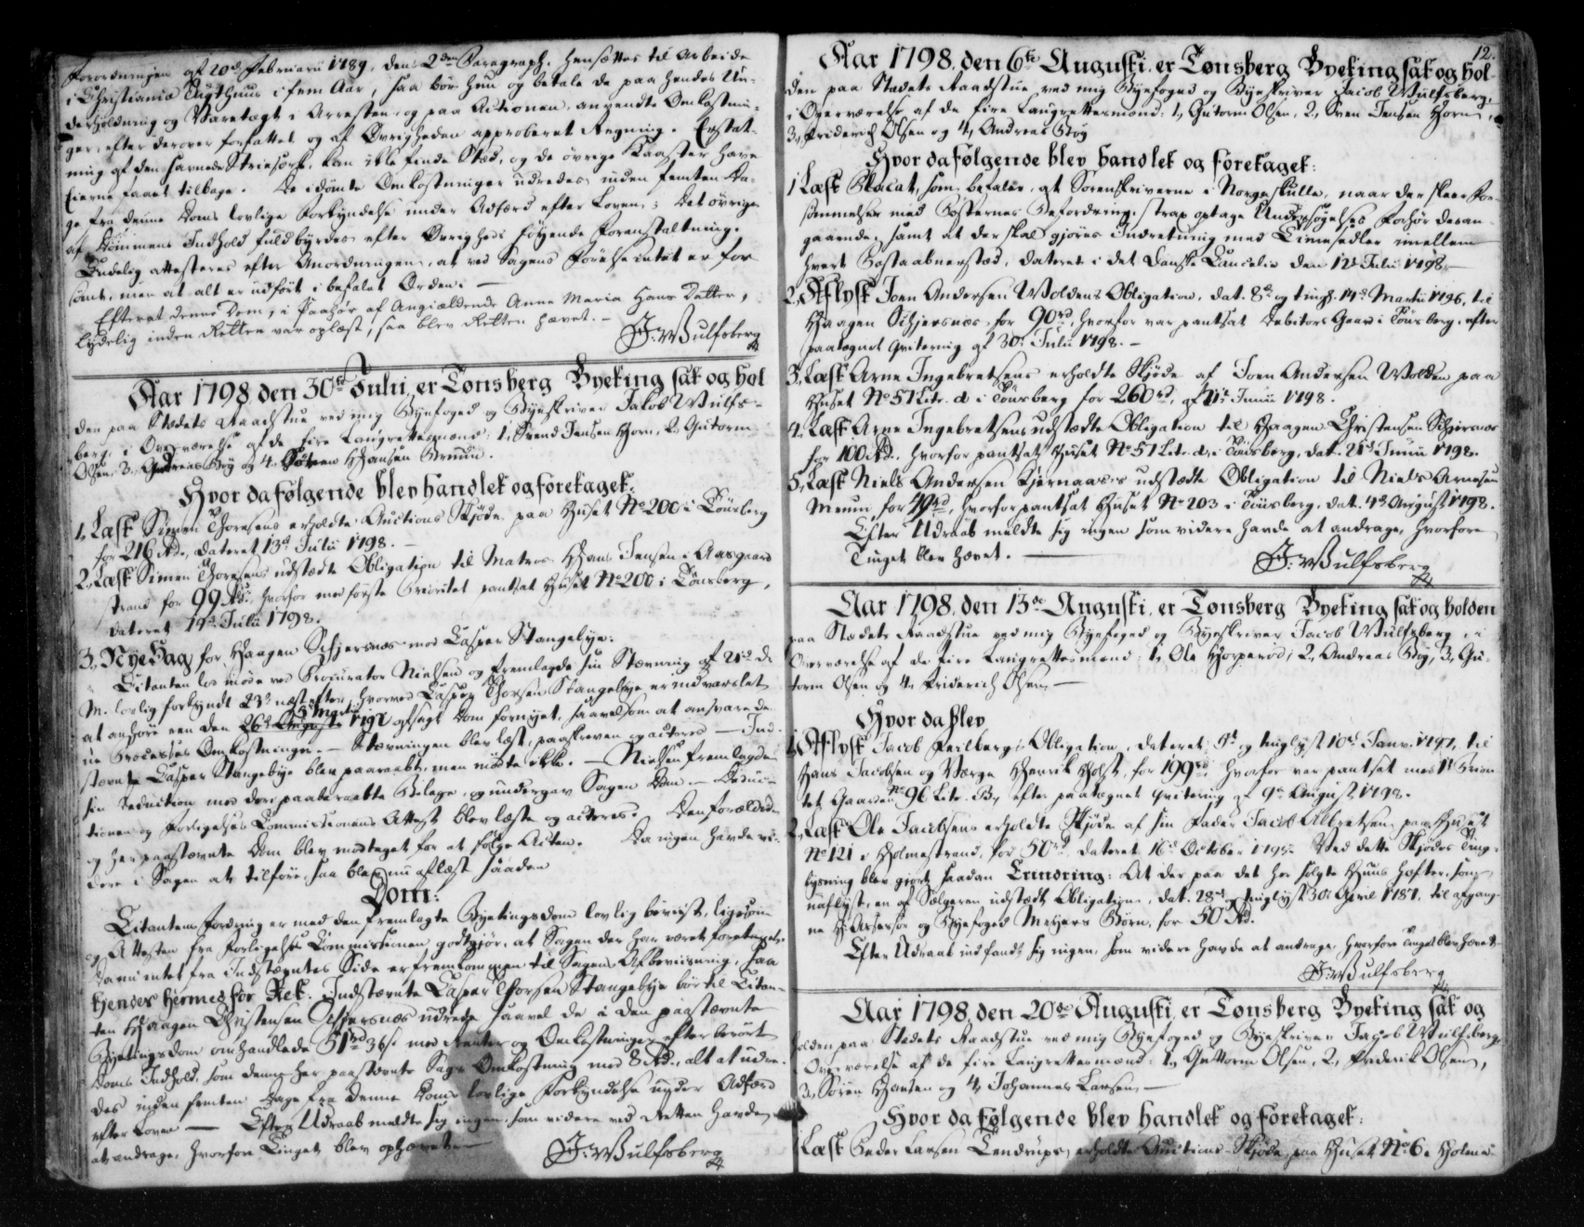 Forordningen af 20de Februarii 1789, dens 2den Paragraph, hensættes til Arbeide
i Christiania Tugthuus i fem Aar, saa bør hun og betale de paa hendes Un-
derholdning og Varetægt i Arresten, og paa Actionen anvendte Omkostnin-
ger, efter derover forfattet og af Øvrigheden approberet Regning. Erstat-
ning af den savnede kan ikke finde Sted, og de øvrige Kaaster have
Eierne faaet tilbage. De idømte Omkostninger udredes inden femten Da-
ge fra denne Doms lovlige Forkyndelse under Adfærd efter Loven; Det øvrige
af Dommens Indhold fuldbyrdes efter Øvrigheds føyende Foranstaltning.
Endelig attesteres efter Anordningen, at ved Sagens Førelse intet er for-
sømt, men at alt er udført i befalet Orden.
Efterat denne Dom, i Paahør af Angieldende Anne Maria Hans Datter,
lydelig inden Retten var oplæst, saa blev Retten hævet.
J: Wulfsberg
Aar 1798 den 30te Julii, er Tønsberg Byeting sat og hol
den paa Stædets Raadstue ved mig Byefoged og Byeskriver Jakob Wulfs-
berg, i Overværelse af de fire Laugrettesmænd: 1, Svend Jensen Horn, 2, Guttorm
Olsen, 3, Andreas Bøy og 4, Søren Hansen
Hvor da følgende blev handlet og foretaget:
1, Læst Simen Thoresens erholdte Auctions Skjøde paa Huset No 200 i Tønsberg
for 216 Rd, dateret 13de Julii 1798.
2, Læst Simen Thoresens udstædte Obligation til Matros Hans Jensen i Aasgaard
strand for 99 Rd, hvorfor med første Prioritet pantsat Huset No 200 i Tønsberg,
dateret 14de Julii 1798.
3, Nye Sag, for Haagen Schjersnæs mod Casper Stangebye.
Citanten lod møde ved Procurator Nielsen og fremlagde sin Stævning af 21de d:
M. lovlig forkyndt 23de næstefter, hvorved Casper Thorsen Stangebye er indvarslet
at anhøre een den 26de 1797 afsagt Dom fornyet, saavelsom at ansvare den-
ne Processes Omkostninger. Stævningen blev læst, paaskreven og acteres. Ind-
stævnte Casper Stangebye blev paaraabt, men mødte ikke. Nielsen fremlagde
sin Deduction med dere paaberaabte Bilage, og undergav Sagen Dom. Deduc-
tionen og Forligelses Commissionens Attest blev læste og acteres. Den forældede
og her paastævnte Dom blev modtaget for at følge Acten. Da ingen havde vi-
dere i Sagen at tilføre, saa blev nu aflæst saadan
Dom:
Citantens Fordring er med den fremlagte Byetingsdom lovlig beviist, ligesom
og Attesten fra Forligelses Commissionen godtgjør, at Sagen der har været foretaget.
Da intet fra Indstævntes Side er fremkommen til Sagens Afbeviisning, saa
kjendes hermed for Ret: Indstævnte Casper Thorsen Stangebye bør til Citan-
ten Haagen Christensen Schjersnæs udrede saavel de i den paastævnte
Byetingsdom omhandlede 51 Rd 36 s med Renter og Omkostninger efter berørte
Doms Indhold, som denne her paastævnte Sags Omkostning med 8 Rd, alt at udre-
des inden femten Dage fra denne Doms lovlige Forkyndelse under Adfærd
efter Loven. Efter Udraab meldte sig ingen, som videre ved Retten havde
at andrage, hvorfore Tinget blev ophævet.
J: Wulfsberg
12.
Aar 1798, den 6te Augusti, er Tønsberg Byeting sat og hol-
den paa Stædets Raadstue, ved mig Byefoged og Byeskriver Jacob Wulfsberg,
i Overværelse af de fire Laugrettesmænd: 1, Gutorm Olsen, 2, Sven Jensen Horn,
3, Friderich Olsen og 4, Andreas Bøy
Hvor da følgende blev handlet og foretaget:
1, Læst Placat, som befaler, at Sorenskriverne i Norge skulle, naar der skeer For-
sømmelser med Posternes Befordring, strax optage Undersøgelses Forhør desan-
gaaende, samt at der skal gjøres Indretning med Timesedler imellem
hvert Postaabnersted, dateret i det Danske Cancelie den 12te Julii 1798.
2, Aflyst Joen Andersen Woldens Obligation, dat. 8de og tingl. 14de Martii 1796, til
Haagen Schjersnæs, for 90 rd, hvorfor var pantsat Debitors Gaard i Tønsberg, efter
paategnet Qvitering af 30te Julii 1798.
3, Læst Arne Ingebretsens erholdte Skjøde af Joen Andersen Wolden paa
Huset No 51 Litr. d i Tønsberg for 260 rd, af 21de Junii 1798.
4, Læst Arne Ingebretsens udstædte Obligation til Haagen Christensen Schjersnæs
for 100 Rd, hvorfor pantsat Huset No 51 Litr. d, i Tønsberg, dat. 21de Junii 1798.
5, Læst Niels Andersen Kjørnaas's udstædte Obligation til Niels Arnesen
for 49 rd, hvorfor pantsat Huset No 203 i Tønsberg, dat. 4de August 1798.
Efter Udraab meldte sig ingen som videre havde at andrage, hvorfore
Tinget blev hævet.
J: Wulfsberg
Aar 1798, den 13de Augusti, er Tønsberg Byeting sat og holden
paa Stædets Raadstue ved mig Byefoged og Byeskriver Jacob Wulfsberg i
Overværelse af de fire Laugrettesmænd: 1, Ole Hjorperød, 2, Andreas Bøy, 3, Gu-
torm Olsen og 4, Friderich Olsen
Hvor da blev
1, Aflyst Jacob Feilbergs Obligation, dateret og tinglyst 10de Janv. 1797, til
Hans Jacobsen og Værge Henrik Holst, for 199 rd, hvorfor var pantsat med 1ste Priori-
tet Gaarden No 96 Litr. B, efter paategnet Qvitering af 9de August 1798.
2, Læst Ole Jacobsens erholdte Skjøde af sin Fader Jacob Albretsen paa Huset
No 121 i Holmestrand, for 50 rd, dateret 16de October 1795. Ved dette Skjødes Ting-
lysning blev gjort saadan Erindring: At der paa det her solgte Huus hæfter, som
uaflyst, en af Sælgeren udstædt Obligation, dat. 28de og tinglyst 30te April 1787, til afgang-
ne Hr Assessor og Byefoged Meyers Børn, for 50 Rd.
Efter Udraab indfandt sig ingen, som videre havde at andrage, hvorfore Tinget blev hævet.
J: Wulfsberg
Aar 1798, den 20de Augusti, er Tønsberg Byeting sat og
holden paa Stædets Raadstue ved mig Byefoged og Byeskriver Jacob Wulfsberg,
i Overværelse af de fire Laugrettesmænd: 1, Guttorm Olsen, 2, Frederik Olsen,
3, Sören Hansen og 4, Johannes Larsen,
Hvor da følgende blev handlet og foretaget:
1, Læst Peder Larsen Tendrups erholdte Auctions-Skjøde paa Huset No 6 i Holme-